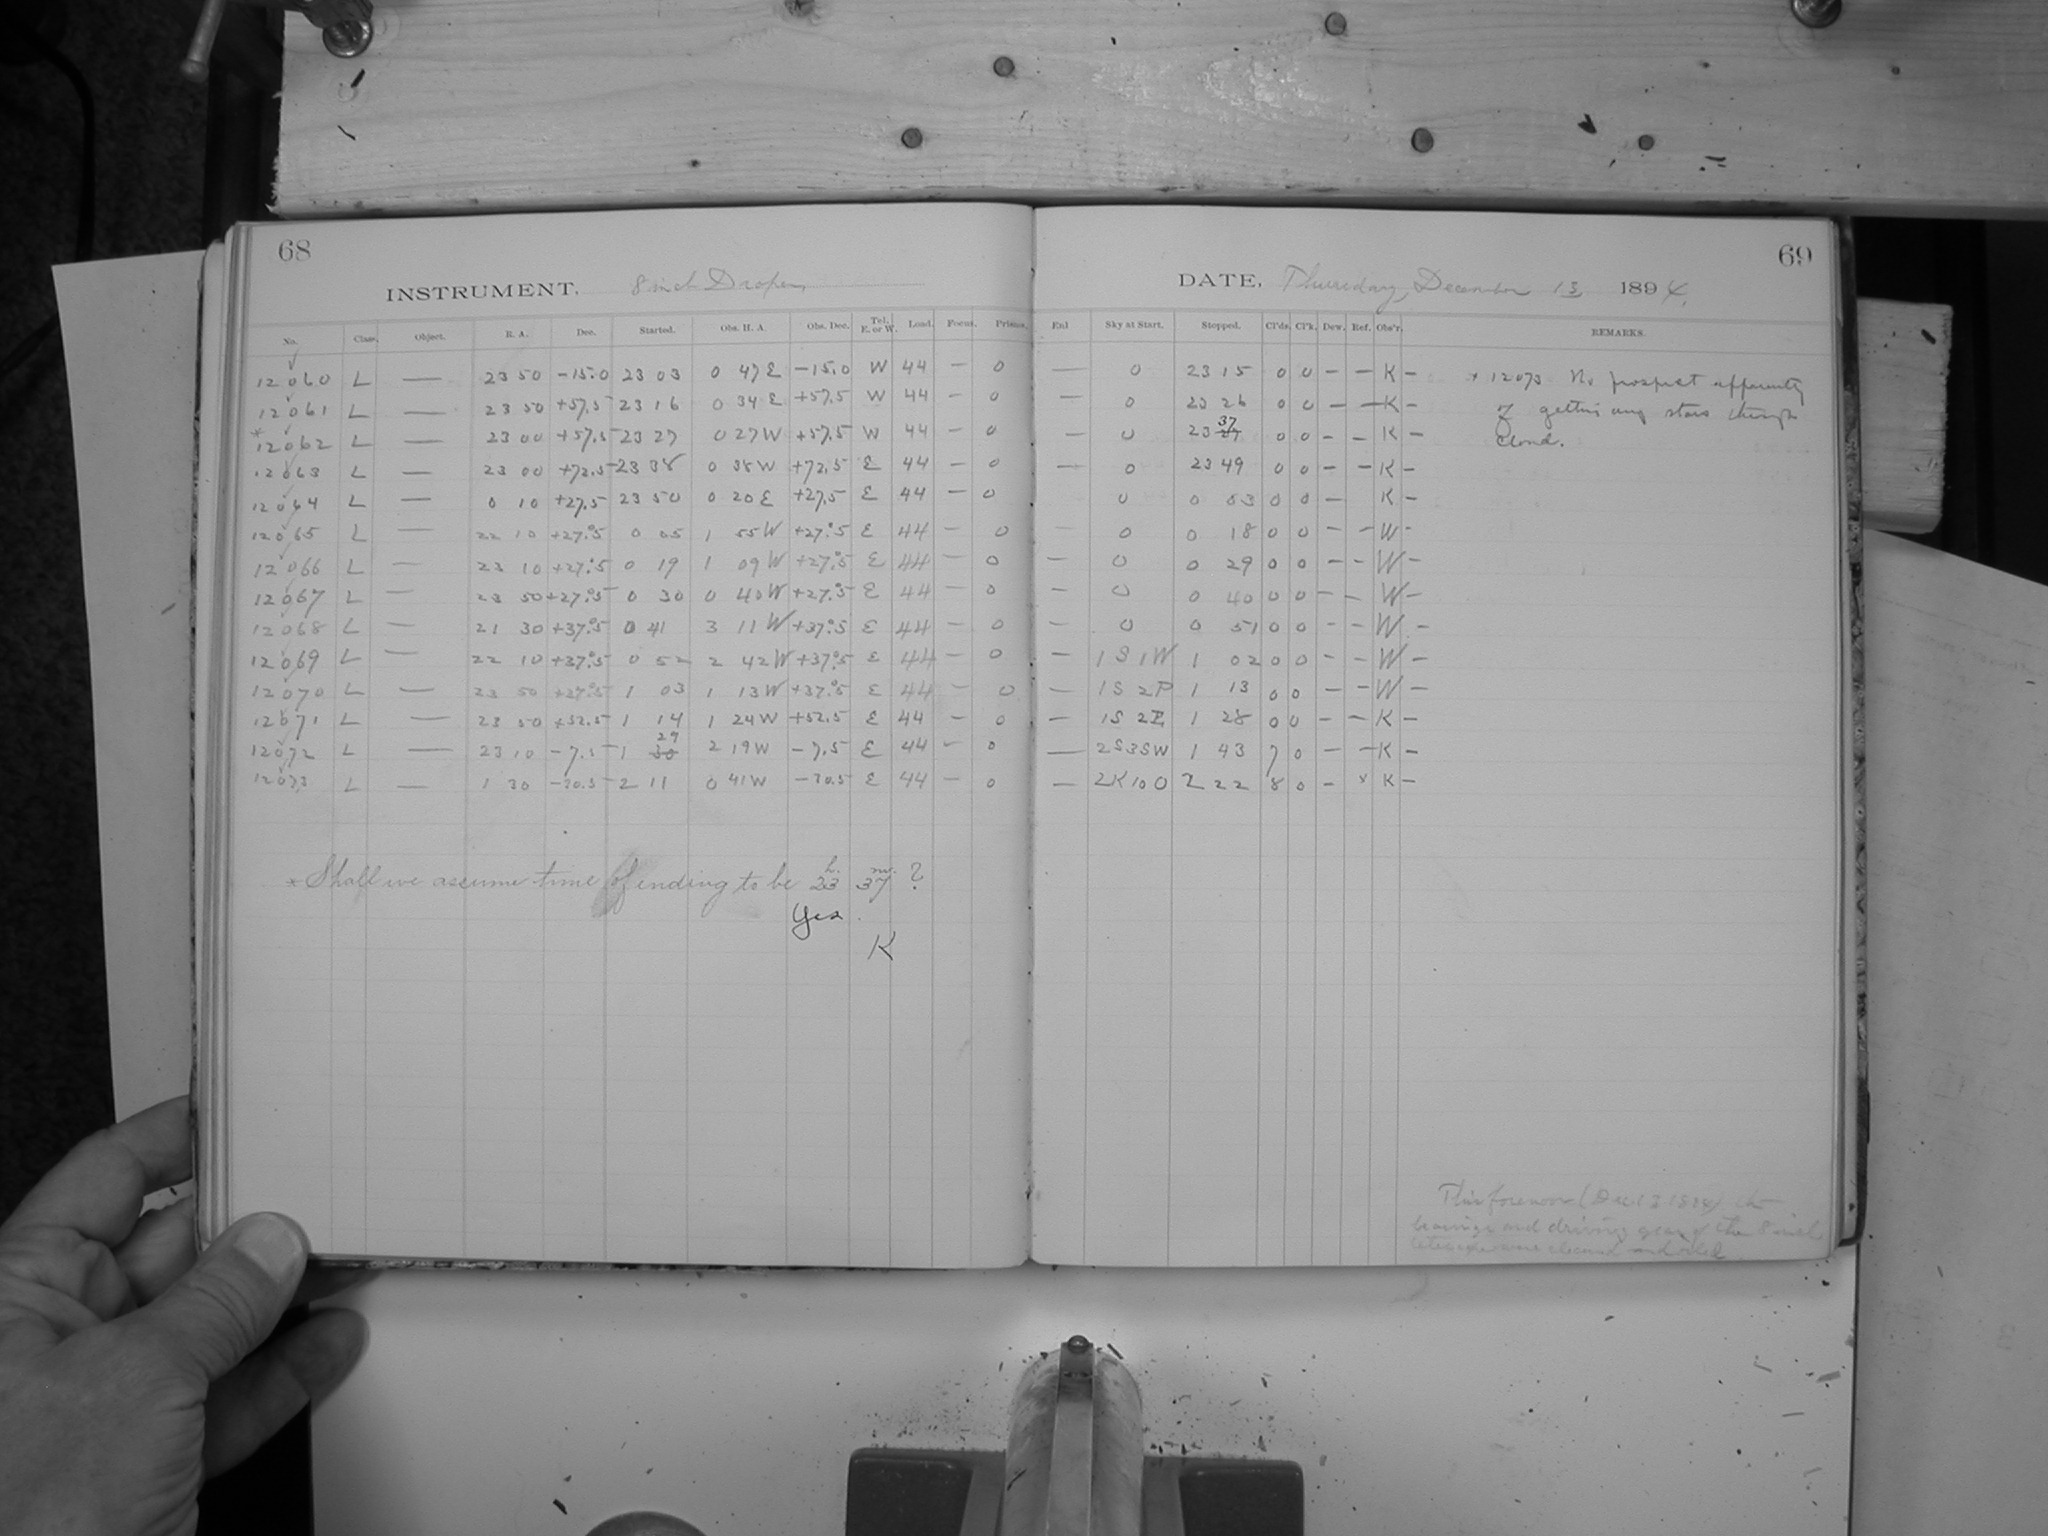 68
INSTRUMENT. 8 inch Draper
No. Class. Object. R. A. Dec. Started. Obs. H. A. Obs. Dec. Tel. E. or W. Load. Focus. Prisms.
12060 L — 23 50 -15.0 23 03 0 47 E -15.0 W 44 — 0
12061 L — 23 50 +57.5 23 16 0 34 E +57.5 W 44 — 0
* 12062 L — 23 00 +57.5 23 27 0 27 W +57.5 W 44 — 0
12063 L — 23 00 +72.5 23 38 0 38 W +72.5 E 44 — 0
12064 L — 0 10 +27.5 23 50 0 20 E +27.5 E 44 — 0
12065 L — 22 10 +27.°5 0 05 1 55 W +27.°5 E 44 — 0
12066 L — 23 10 +27.°5 0 19 1 09 W +27.°5 E 44 — 0
12067 L — 23 50 +27.°5 0 30 0 40 W +27.°5 E 44 — 0
12068 L — 21 30 +37.°5 0 41 3 11 W +37.°5 E 44 — 0
12069 L — 22 10 +37.°5 0 52 2 42 W +37.°5 E 44 — 0
12070 L — 23 50 +37.°5 1 03 1 13 W +37.°5 E 44 — 0
12071 L — 23 50 +52.5 1 14 1 24 W +52.5 E 44 — 0
12072 L — 23 10 -7.5 1 29 30 2 19 W -7.5 E 44 — 0
12073 L — 1 30 2 11 0 41 W E 44 — 0
* Shall we assume time of ending to be 23 h. 37 m. ?
Yes.
K
69
DATE, Thursday, December 13 1894.
Enl Sky at Start. Stopped. Cl'ds. Cl'k. Dew. Ref. Obs'r. REMARKS.
— 0 23 15 0 0 — — K —
— 0 23 26 0 0 — — K —
— 0 23 37 0 0 — — K —
— 0 23 49 0 0 — — K —
0 0 03 0 0 — K —
— 0 0 18 0 0 — — W —
— 0 0 29 0 0 — — W —
— 0 0 40 0 0 — — W —
— 0 0 51 0 0 — — W —
— 1 S 1 W 1 02 0 0 — — W —
— 1 S 2 P 1 13 0 0 — — W —
— 1 S 2 E 1 28 0 0 — — K —
— 2 S 3 SW 1 43 7 0 — — K —
— 2 K 10 0 2 22 8 0 — x K —
x 12073 No prospect apparently
of getting any stars through
cloud.
This forenoon (Dec 13 1894) the
bearings and driving gear of the 8 inch
telescope were cleaned and oiled